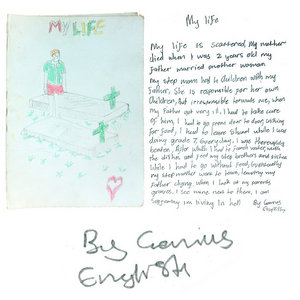 MY LIFE
My life
My life is scattered, My mother
died when I was 2 years old my
father married another woman
my step mom had 4 children with my
father, She is responsible for her own
children, But irresponsible towards me, when
my father got very ill, I had to take care
of him, I had to go from door to door asking
for food, I had to leave school while I was
doing grade 7, Everyday I was thoroughly
beaten, After which I had to
the dishes and feed my step brothers and sisters
while I had to go without food, Eventually
my step mother went to town, leaving my
father dying, when I look at my parents
graves, I see mine next to them, I am
suffering im living in hell By Genius
English
By Genius
English